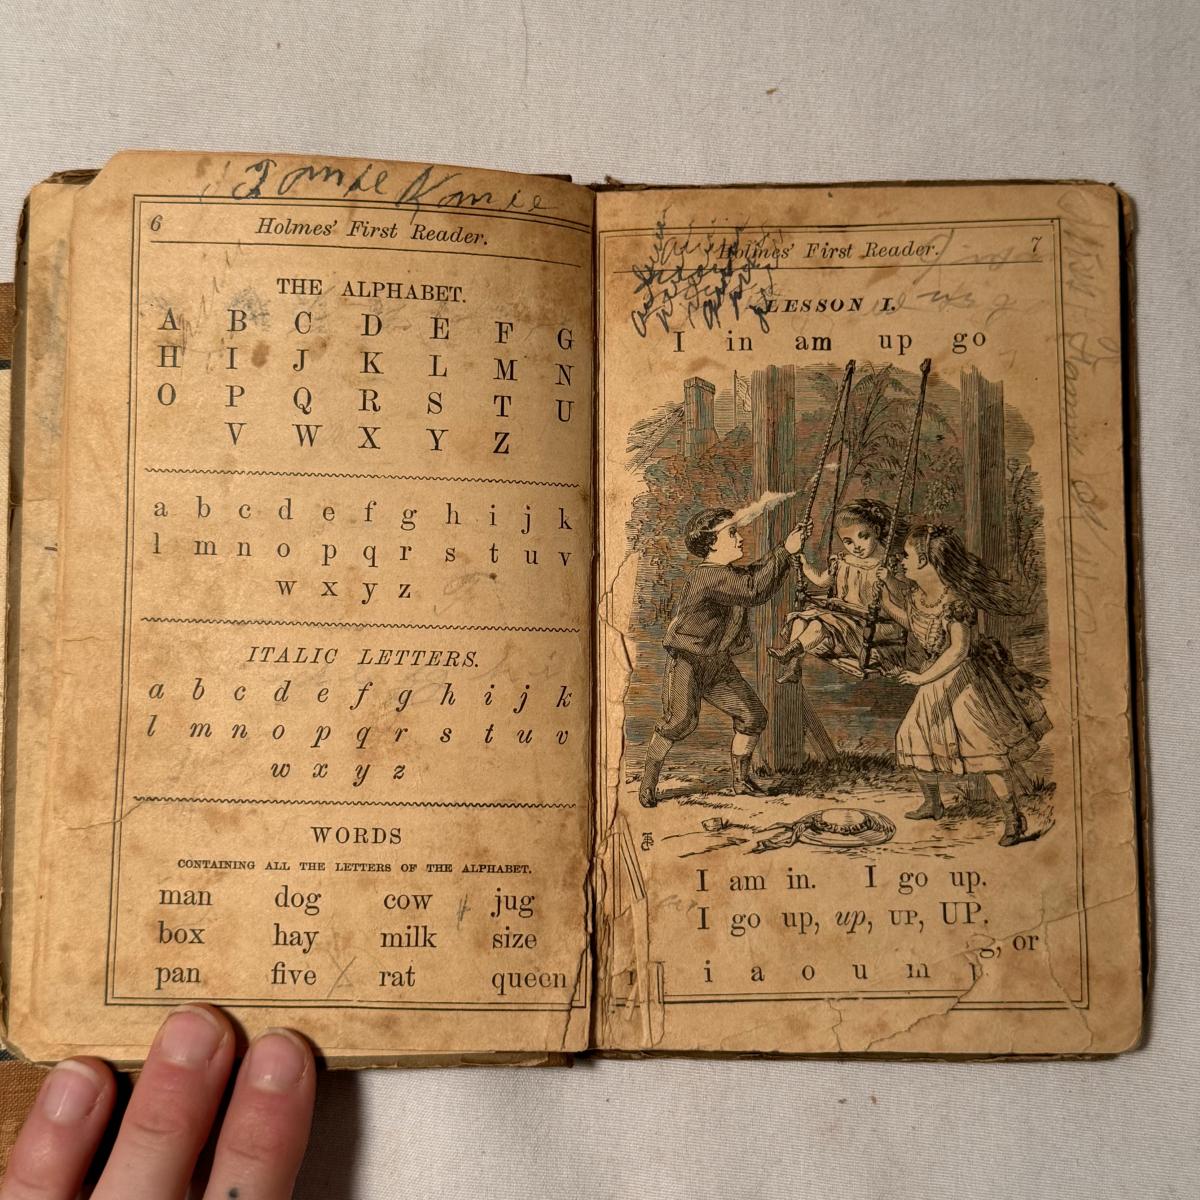 6 Holmes' First Reader.
THE ALPHABET.
A B C D E F G
H I J K L M N
O P Q R S T U
V W X Y Z
a b c d e f g h i j k
l m n o p q r s t u v
w x y z
ITALIC LETTERS.
a b c d e f g h i j k
l m n o p q r s t u v
w x y z
WORDS
CONTAINING ALL THE LETTERS OF THE ALPHABET.
man dog cow jug
box hay milk size
pan five rat queen
Holmes' First Reader. 7
LESSON I.
I in am up go
I am in. I go up.
I go up, up, UP, UP.
g, or
i a o u m